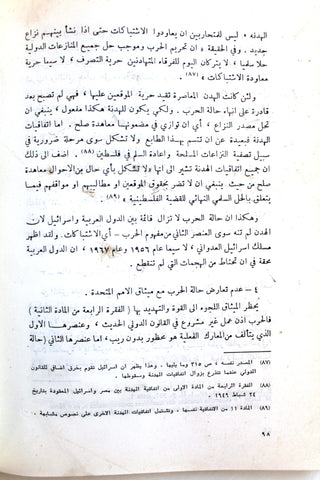 الهدنة . ليس للمتحاربين ان يعاودوا الاشتباكات حتى اذا نشأ بينهم نزاع
جديد . وفي الحقيقة ، ان تحريم الحرب وموجب حل جميع المنازعات الدولية
حلا سلميا ، لا يتركان اليوم للفرقاء المتهادنين حرية التصرف ، لا سيما حرية
معاودة الاشتباكات ، (٨٧)
ولئن كانت الهدن المعاصرة تقيد حرية الموقعين عليها ، فهي لم تصبح بعد
قادرة على انهاء حالة الحرب . ولكي يكون للهدنة هكذا مفعول ، ينبغي ان
تحل مصدر النزاع ، أي ان توازي في مضمونها معاهدة صلح . اما اتفاقيات
الهدنة فبعيدة عن ان تتسم بهذا الطابع ولا تشكل سوى مرحلة ضرورية في
سبيل تصفية النزاعات المسلحة واعادة السلم في فلسطين (٨٨) . اضف الى ذلك
ان جميع اتفاقيات الهدنة تشير الى انها لا تشكل بأي حال من الاحوال معاهدة
صلح من حيث . ينبغي ان لا تضر بحقوق الموقعين او مطالبهم او مواقفهم فيما
يتعلق بالحل السلمي النهائي للقضية الفلسطينية ، (٨٩) .
وهكذا ان حالة الحرب لا تزال قائمة بين الدول العربية واسرائيل لان
الهدن لم تنه سوى العنصر الثاني من مفهوم الحرب – أي الاشتباكات . ولقد اظهر
مسلك اسرائيل العدواني ، لا سيما عام ١٩٥٦ وعام ١٩٦٧ ، ان الدول العربية
محقة في ان تحتاط من الهجمات التي لم تنقطع .
٤ – عدم تعارض حالة الحرب مع ميثاق الامم المتحدة .
يحظر الميثاق اللجوء الى القوة والتهديد بها ( الفقرة الرابعة من المادة الثانية )
فالحرب اذن عمل غير مشروع في القانون الدولي الحديث ، وعنصرها الأول
الذي يتألف من المعارك الفعلية هو محظور بدون ريب ، اما عنصرها الثاني ( حالة
(٨٧) المصدر نفسه ، ص ٣١٥ وما يليها . وهذا يظهر ان اسرائيل تقوم بخرق اضافي للقانون
الدولي عندما تتذرع بزوال اتفاقيات الهدنة وسقوطها .
(٨٨) الفقرة الرابعة من المادة الاولى من اتفاقية الهدنة بين مصر واسرائيل المعقودة بتاريخ
٢٤ شباط ١٩٤٩ .
(٨٩) المادة 11 من الاتفاقية نفسها ، وتشتمل اتفاقيات الهدنة الاخرى على نصوص مشابهة .
٩٨